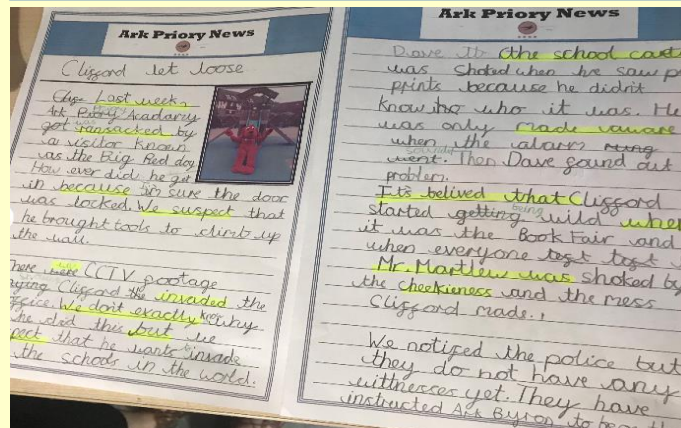 Ark Priory News
Cliggord let loose
Last week,
Ark Priory Acadamy
got ransacked by
a visitor known
as the Big Red dog
How ever did he get
in because im sure the door
was locked. We suspect that
he brought tools to climb up
the wall.
here were CCTV gootage
Cliggord the invaded the
ggice. We don't exactly know why
he did this but we
pect that he wants to invade
the schools in the world.
Ark Priory News
Dave It (the school caret
was shoked when he saw p
prints because he didn't
know who it was. He
was only made aware
when the alarm rung
sounded
went. Then Dave gound out
problem.
It's belived that Cliggord
started getting being wild when
it was the Book Fair and
when everyone test test
Mr. Martlew was shoked by
the cheekieness and the mess
Cliggord made.
We notiged the police but
they do not have any
witnesses yet. They have
instructed Ark Byron to be